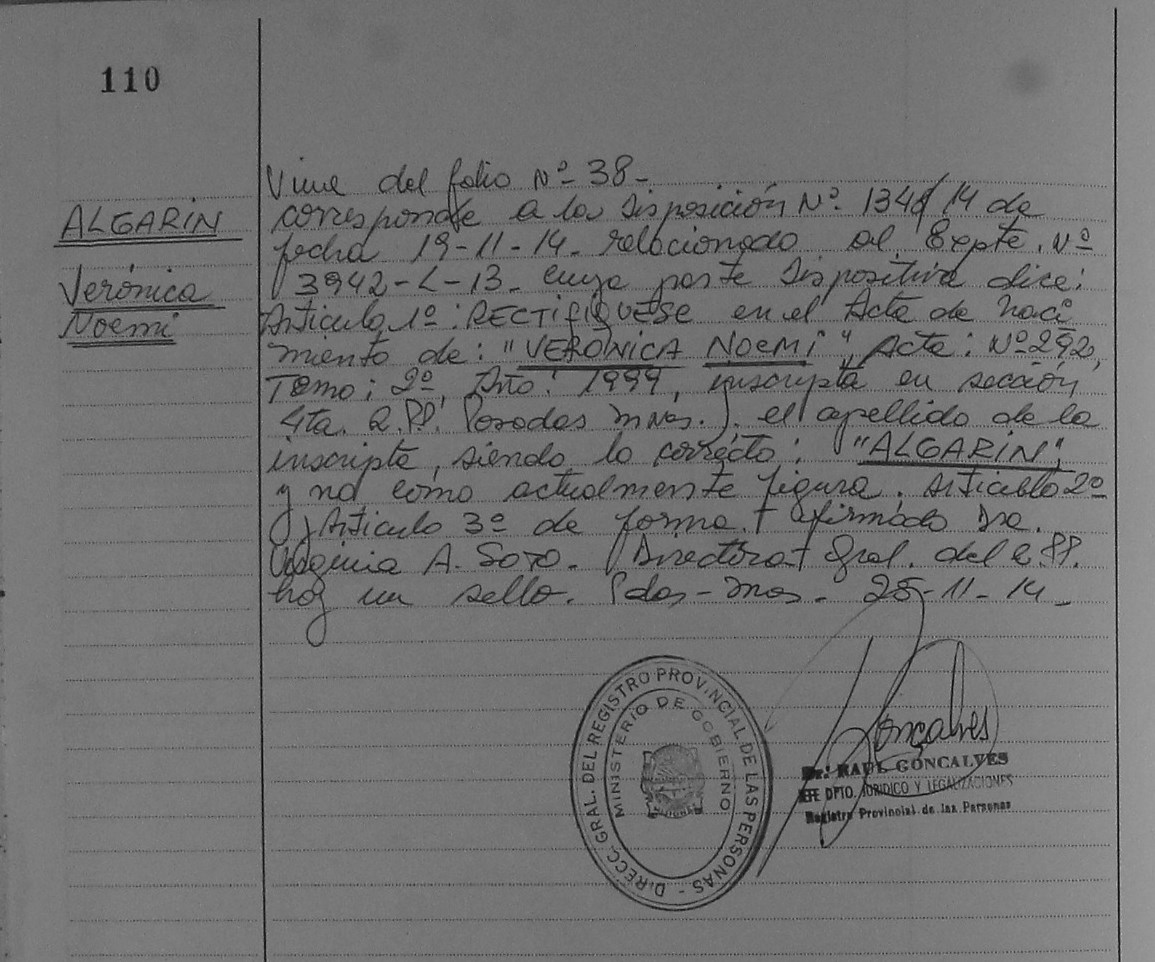 110
ALGARÍN
Verónica
Noemí
Viene del folio Nº 38-
corresponde a la Disposición Nº 134 /14 de
fecha 19-11-14. relacionado al Expte. Nº
3942-L-13. cuya parte Dispositiva dice:
Articulo 1º: RECTIFIQUESE en el Acta de naci
miento de: "VERÓNICA NOEMÍ", Acta: Nº 292,
Tomo: 2º, Año: 1999, inscripta en sección
4ta. R.PP. Posadas mnes.). el apellido de la
inscripta, siendo lo correcto: "ALGARÍN",
y no como actualmente figura. Articulo 2º
y Articulo 3º de forma. + firmado Dra.
Virginia A. Soto. Directora Gral. del R.PP.
hay un sello. Pdas-mnes. 25-11-14-
DIRECC. GRAL. DEL REGISTRO PROVINCIAL DE LAS PERSONAS -
MINISTERIO DE GOBIERNO
MISIONES
Gonçalves
Dr. RAUL GONCALVES
JEFE DPTO. JURIDICO Y LEGALIZACIONES
Registro Provincial de las Personas